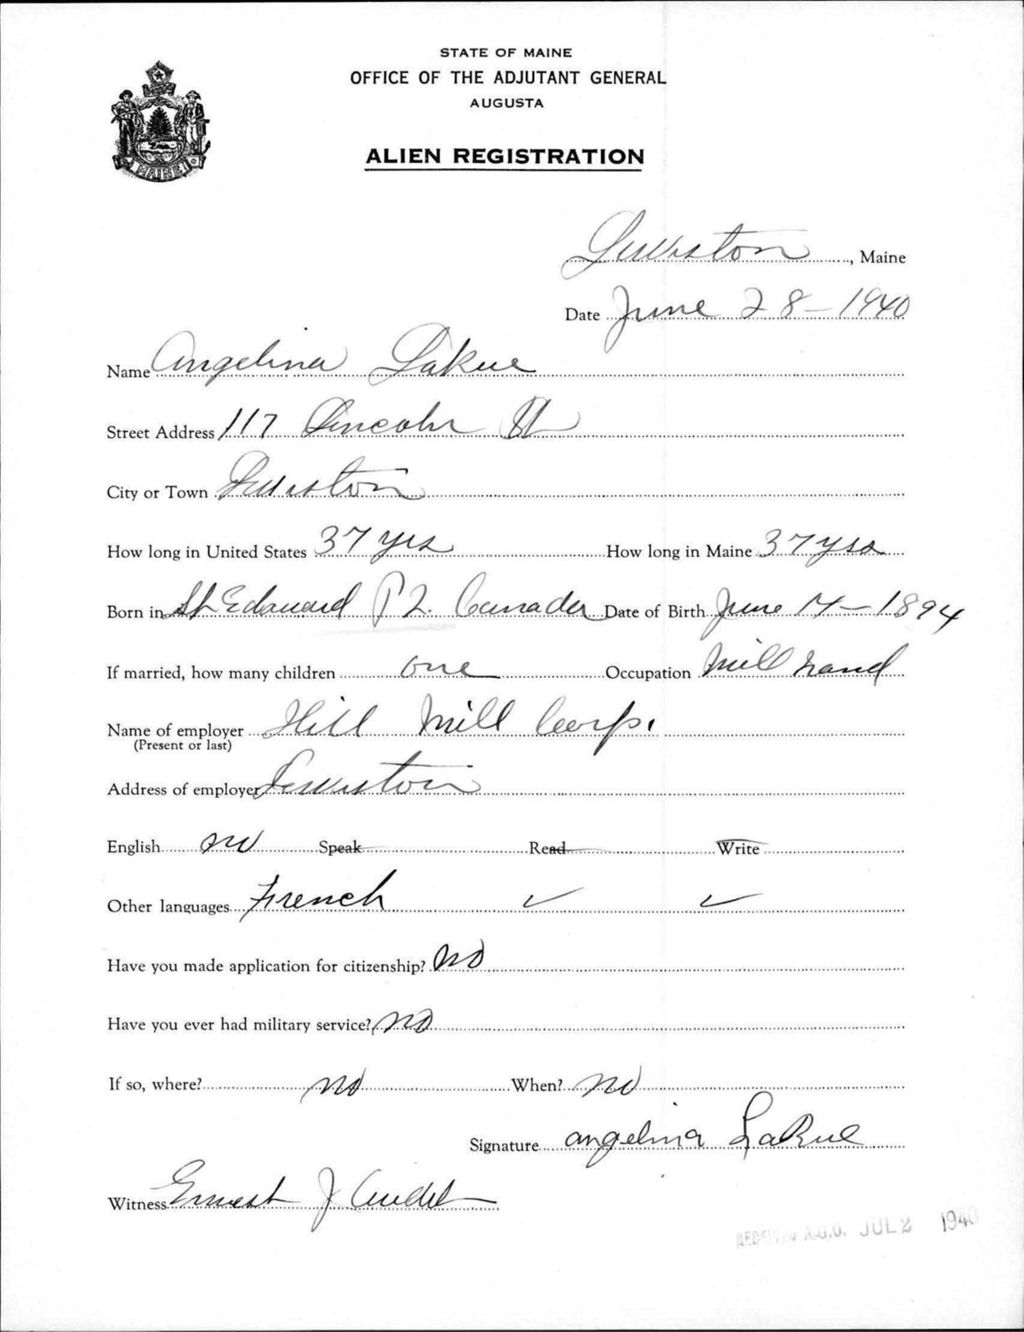 STATE OF MAINE
OFFICE OF THE ADJUTANT GENERAL
AUGUSTA
ALIEN REGISTRATION
MAINE
Lewiston, Maine
Date June 28-1940
Name Angelina LaRue
Street Address 117 Lincoln St
City or Town Lewiston
How long in United States 37 yrs How long in Maine 37 yrs
Born in St Edouard P2. Canada Date of Birth June 14-1894
If married, how many children one Occupation Mill hand
Name of employer Hill Mill Corp.
(Present or last)
Address of employer Lewiston
English no Speak Read Write
Other languages French ✓ ✓
Have you made application for citizenship? No
Have you ever had military service? no
If so, where? no When? no
Signature angelina LaRue
Witness Ernest J Audet
RECEIVED A.G.O. JUL 2 1940